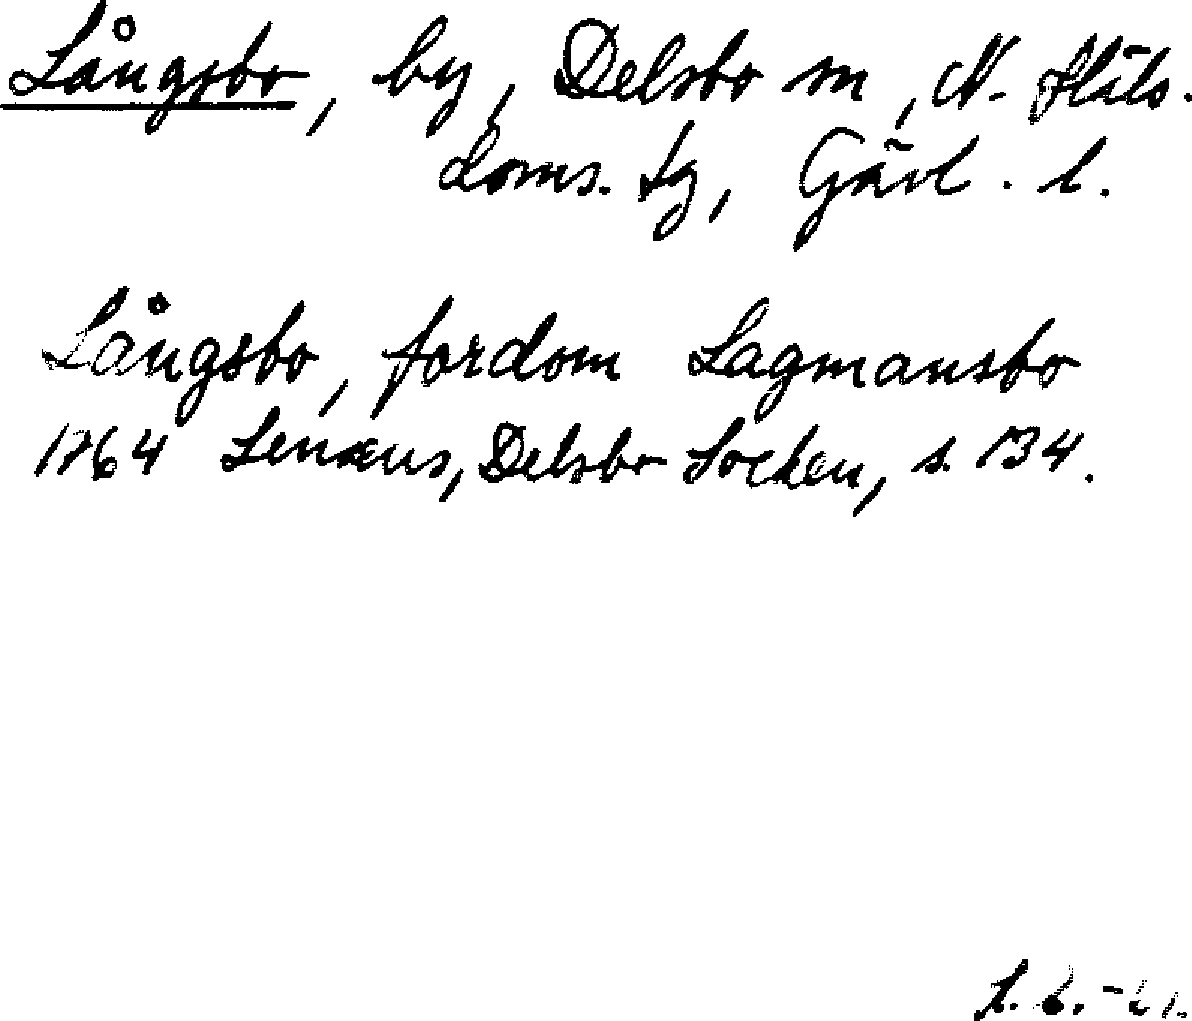 Långsbo, by, Delsbo sn, N. Häls.
Doms. tg, Gävl. l.
Långsbo, fordom Lagmansbo
1764 Lenæus, Delsbo Socken, s. 134.